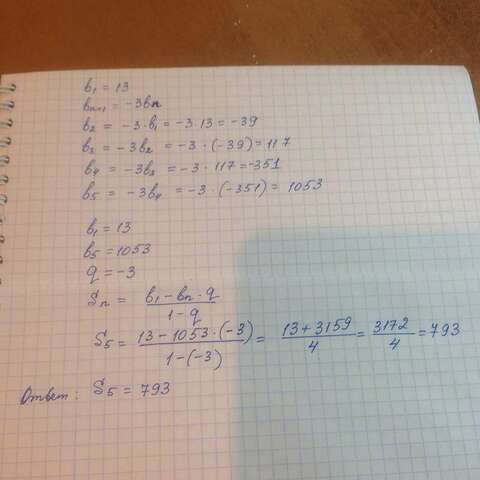 b₁ = 13
bₙ₊₁ = -3bₙ
b₂ = -3·b₁ = -3·13 = -39
b₃ = -3b₂ = -3·(-39) = 117
b₄ = -3b₃ = -3·117 = -351
b₅ = -3b₄ = -3·(-351) = 1053
b₁ = 13
b₅ = 1053
q = -3
Sₙ = (b₁ - bₙ·q)/(1 - q)
S₅ = (13 - 1053·(-3))/(1 - (-3)) = (13 + 3159)/4 = 3172/4 = 793
Ответ: S₅ = 793